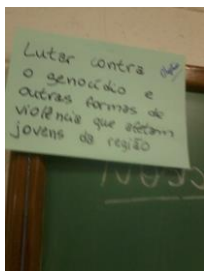 Lutar contra
o genocídio e
outras formas de
violência que afetam
jovens da região